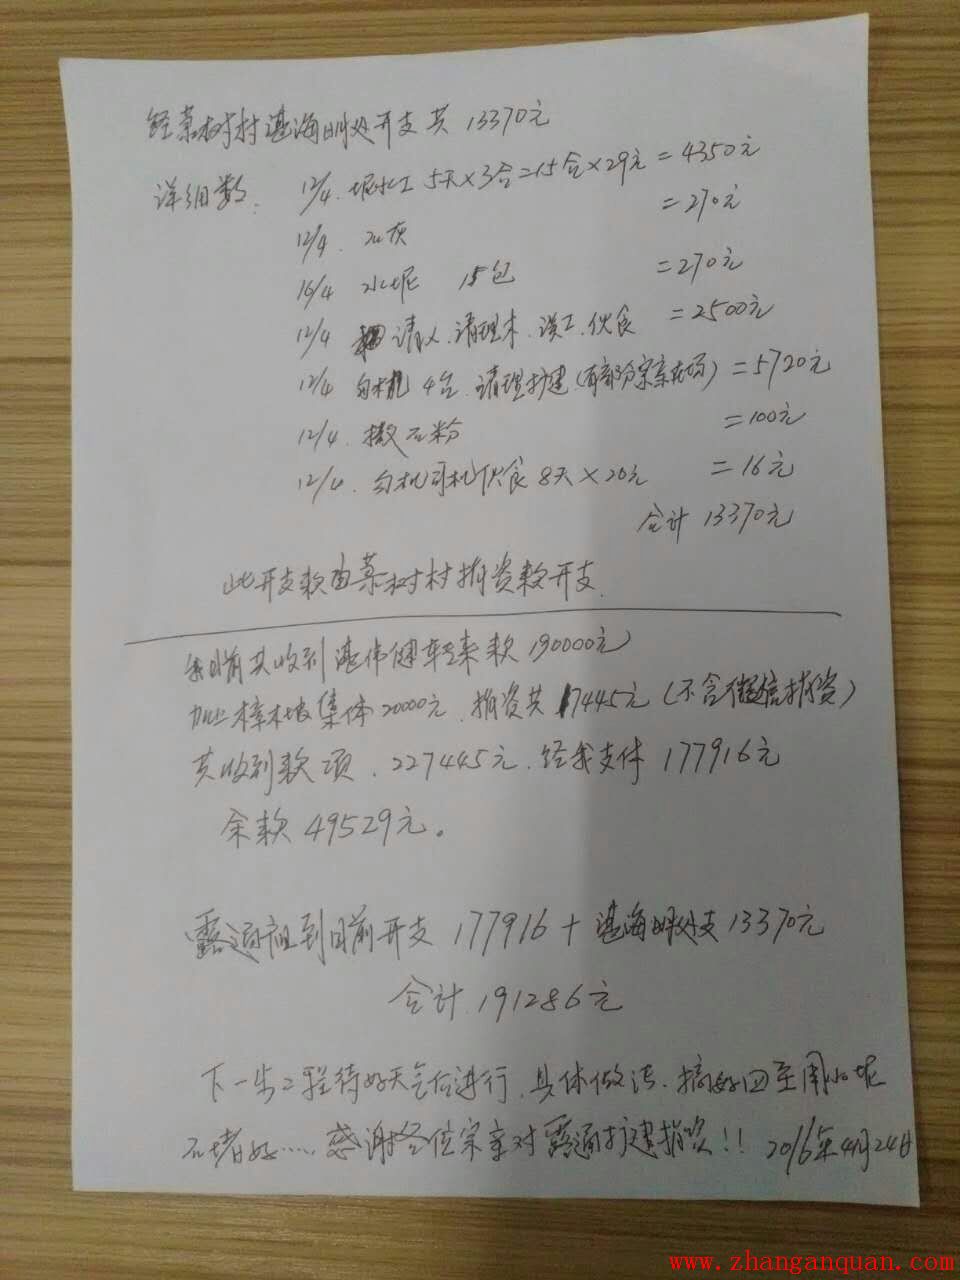 经菜树村湛海明处开支共13370元
详细数: 12/4. 坭水工 5天×3台=15台×29元=4350元
12/4. 石灰 =270元
16/4 水坭 15包 =270元
12/4 请人.清理木.误工.伙食 =2500元
12/4 勾机 4台.清理扩建(有部分宗亲在场)=5720元
12/4. 撒石粉 =100元
12/4. 勾机司机伙食8天×20元 =16元
合计 13370元
此开支款由菜树村捐资款开支.
目前共收到湛伟健转来款190000元
加上樟木坡集体20000元.捐资共17445元(不含微信捐资)
共收到款项.227445元.经我支付177916元
余款49529元。
露通祖到目前开支177916+湛海明处支13370元
合计191286元
下一步工程待好天气后进行.具体做法.搞好四至用水坭
石堵好……感谢各位宗亲对露通扩建捐资!! 2016年4月24日
www.zhanganquan.com